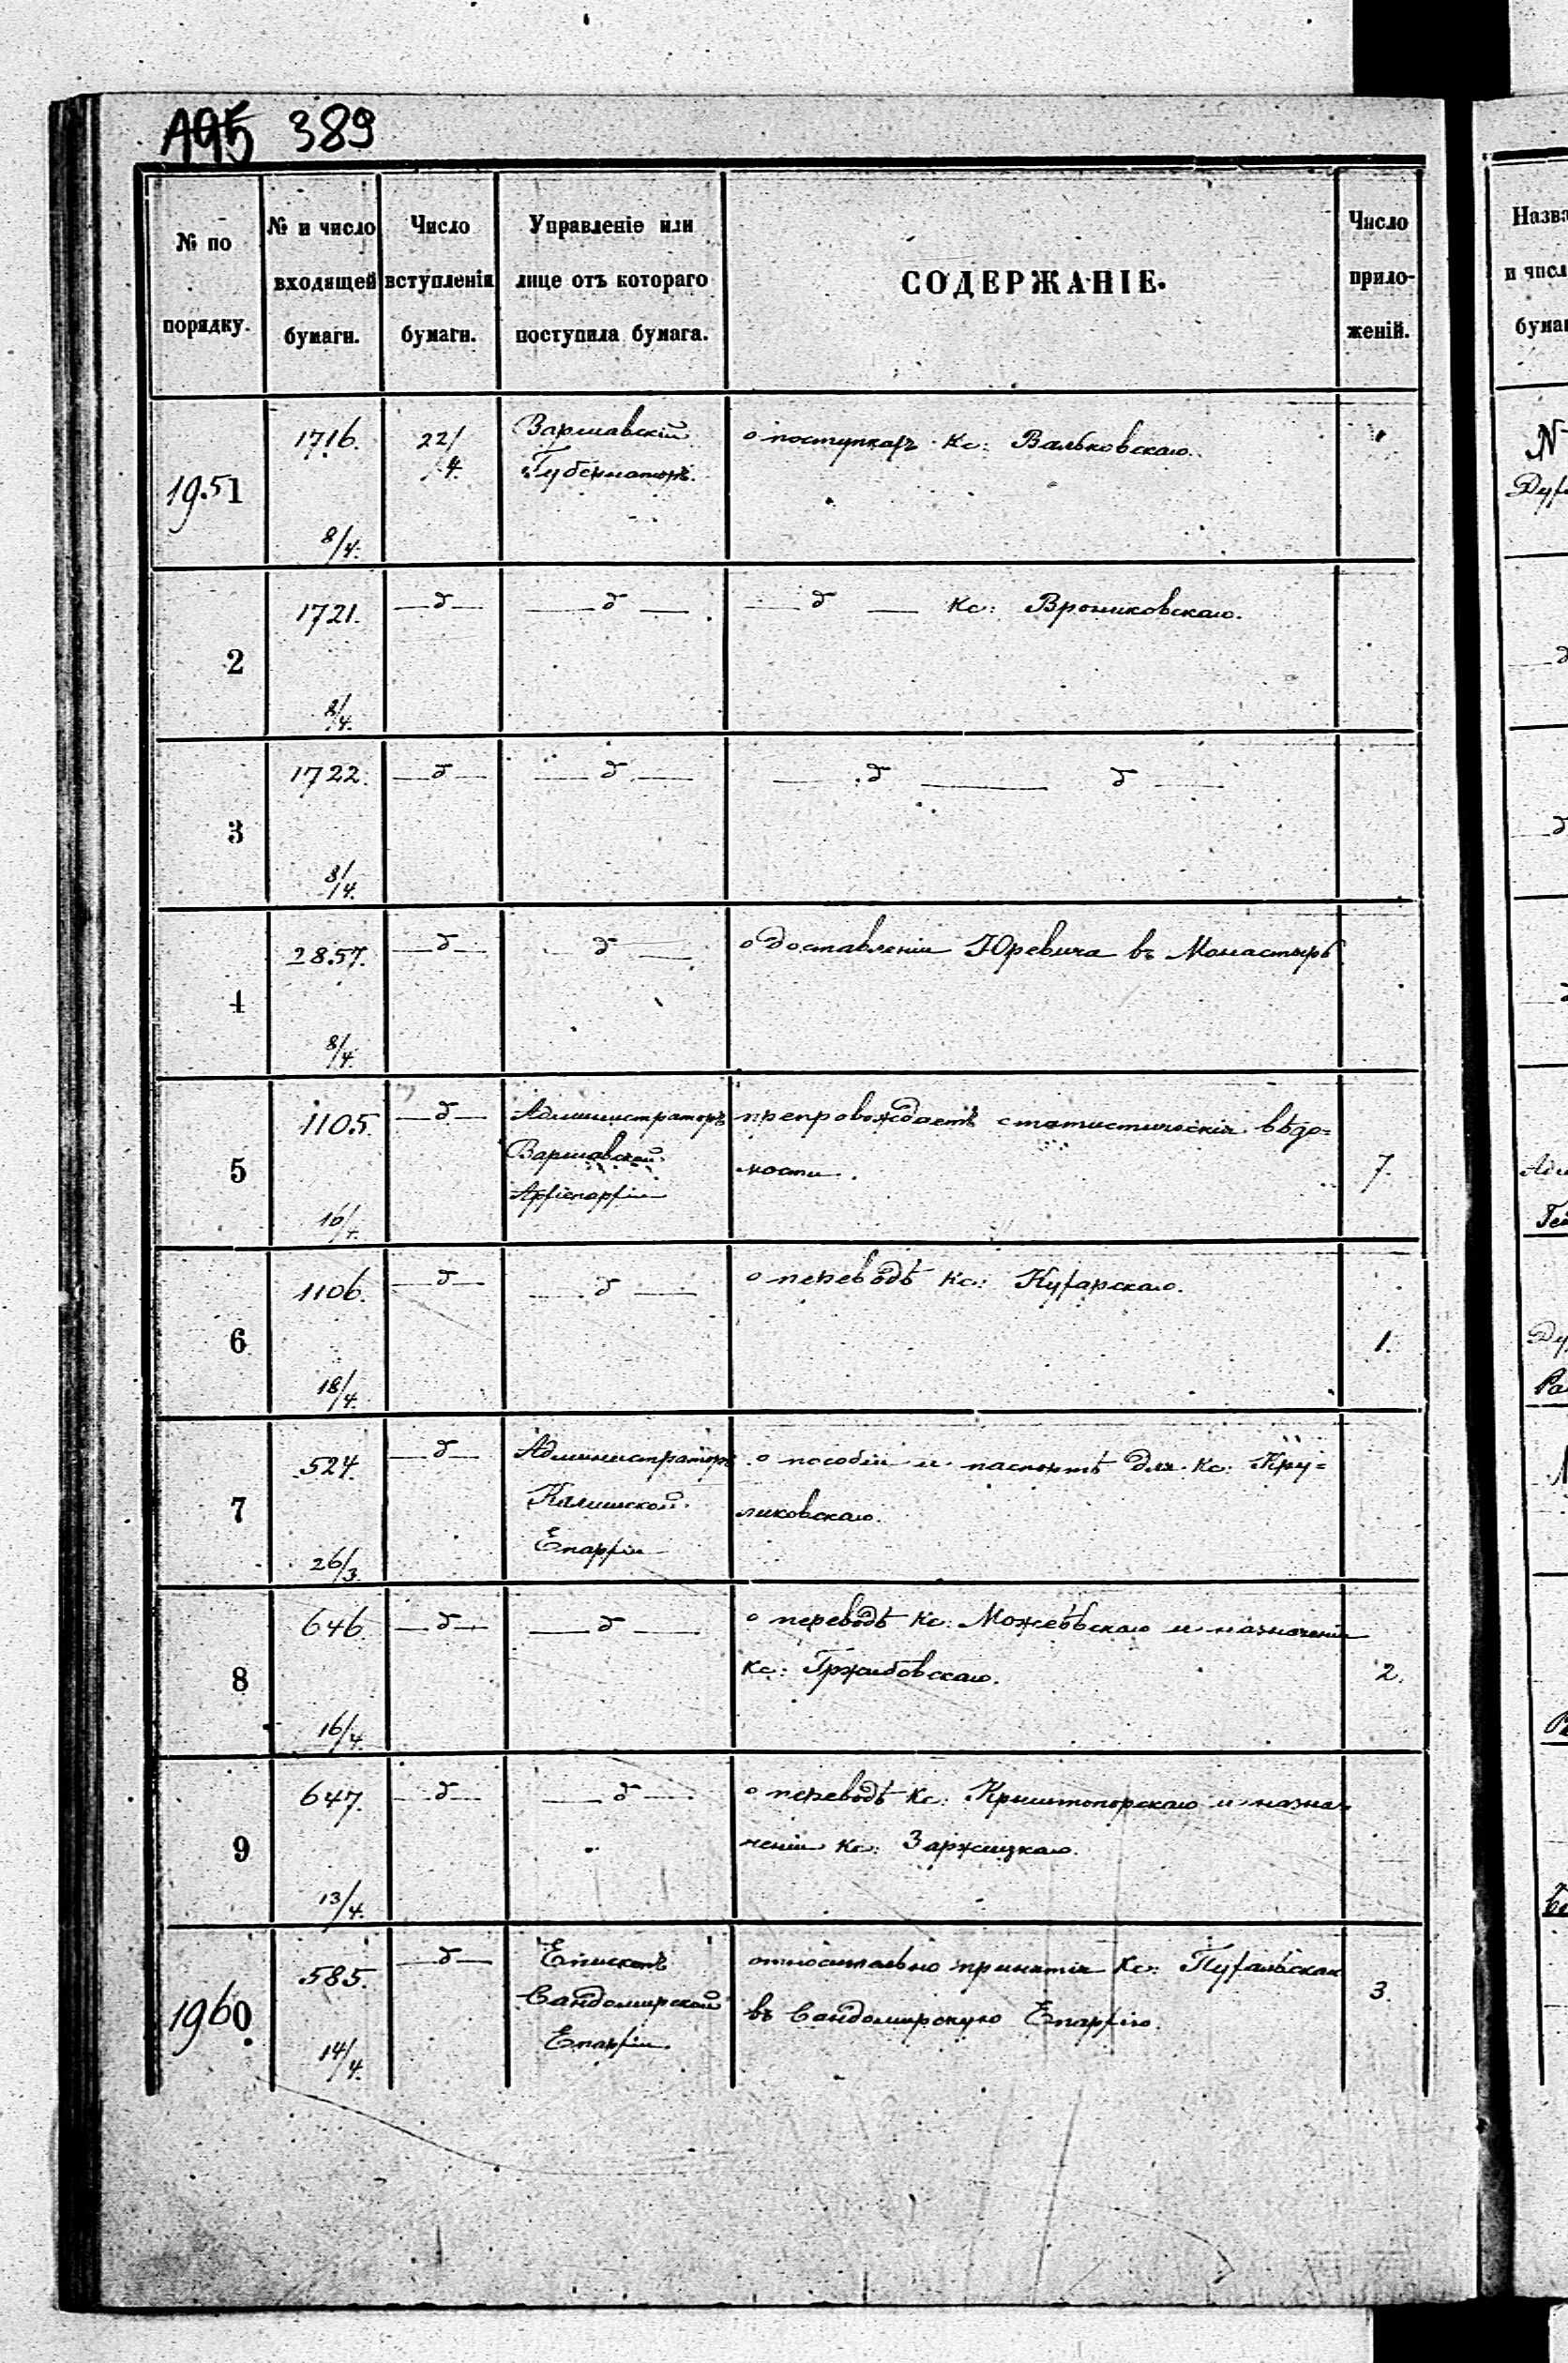 195 389
№ по
порядку.
№ и число
входящей
бумаги.
Число
вступленія
бумаги.
Управленіе или
лице отъ котораго
поступила бумага.
СОДЕРЖАНІЕ.
Число
прило-
женій.
1951
1716.
8/4.
22/4.
Варшавскій
Губернаторъ.
о поступкахъ Кс: Вальковскаго.
2
1721.
8/4.
—δ—
—δ—
—δ— Кс: Врониковскаго.
3
1722.
8/4.
—δ—
—δ—
—δ— δ—
4
2857.
8/4.
—δ—
—δ—
о доставленіи Юревича въ Монастырь
5
1105.
16/4.
—δ—
Администраторъ
Варшавской
Архіепархіи
препровождаетъ статистическія вѣдо=
мости.
7.
6
1106.
18/4.
—δ—
—δ—
о переводѣ Кс: Кухарскаго.
1.
7
524.
26/3.
—δ—
Администраторъ
Калишской
Епархіи
о пособіи и паспортѣ для Кс: Кру=
ликовскаго.
8
646.
16/4.
—δ—
—δ—
о переводѣ Кс: Можеевскаго и назначеніи
Кс: Гржибовскаго.
2.
9
647.
13/4.
—δ—
—δ—
о переводѣ Кс: Криштопорскаго и назна-
ченіи Кс: Заржицкаго.
1960.
585.
14/4.
—δ—
Епископъ
Сандомирской
Епархіи.
относительно принятія Кс: Пухальскаго
въ Сандомирскую Епархію.
3.